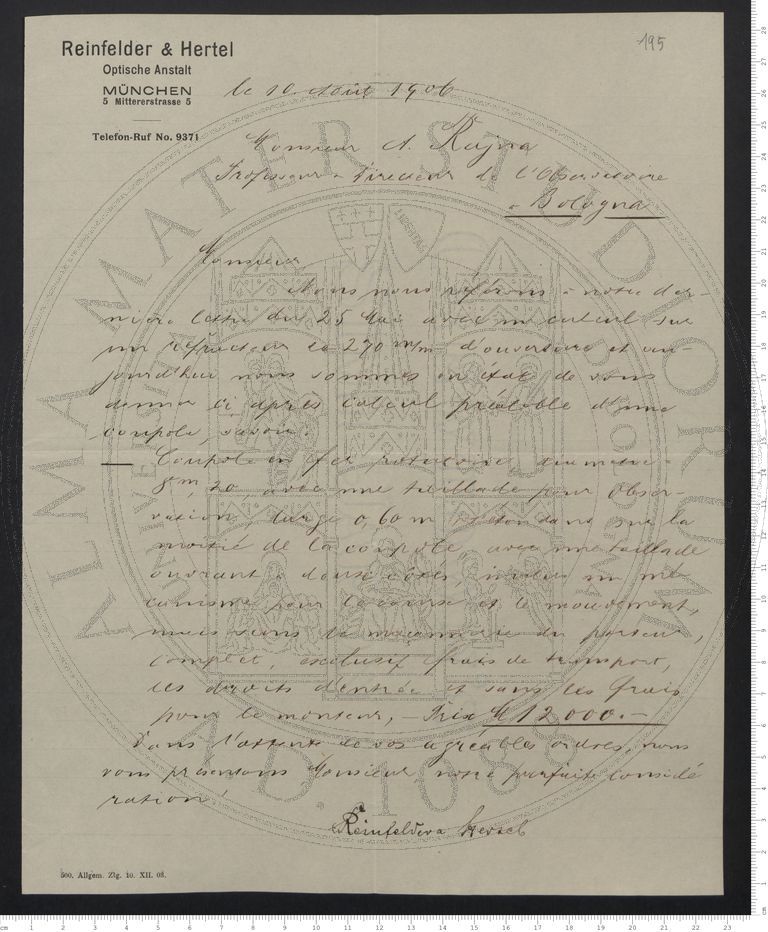 195
Reinfelder & Hertel
Optische Anstalt
MÜNCHEN
5 Mittererstrasse 5
Telefon-Ruf No. 9371
le 10. Août 1906
Monsieur A. Rajna
Professeur - Directeur de l'Observatoire
à Bologna
Monsieur
Nous nous référons à notre der-
nière lettre du 25 Mai avec un calcul sur
un réfracteur de 270 m/m d'ouverture et au-
jourd'hui nous sommes en état de vous
donner ci après calcul préalable d'une
coupole, savoir:
— Coupole en fer rotatoire, diamètre
8m, 50, avec une taillade pour obser-
vation, large 0,60 m s'étendant sur la
moitié de la coupole, avec une taillade
ouvrant à deux côtés inclus un mé-
canisme pour la course et le mouvement,
mais sans la maçonnerie du porteur,
complet, exclusif frais de transport,
les droits d'entrée et sans les frais
pour le monteur, — Prix M 12000.—
Dans l'attente de vos agréables ordres, nous
vous présentons Monsieur notre parfaite considé
ration!
Reinfelder & Hertel
500. Allgem. Ztg. 10. XII. 03.
ALMA MATER STUDIORUM
A.D. 1088
LIBERTAS